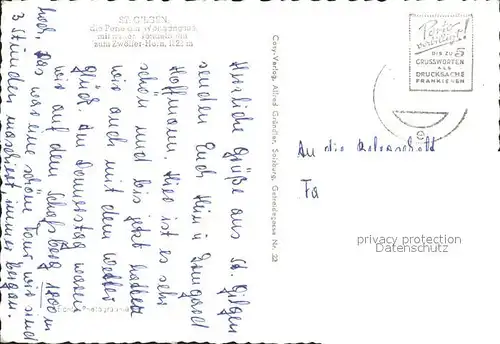 ST. GILGEN,
die Perle am Wolfgangsee,
mit neuer Kabinenbahn
zum Zwölfer-Horn, 1521 m
Herzliche Grüße aus St. Gilgen
senden Euch Heini u. Irmgard
Hoffmann. Hier ist es sehr
schön und bis jetzt hatten
wir auch mit dem Wetter
Glück. Am Donnerstag waren
wir auf dem Schafberg 1800 m
hoch. Das war eine schöne Tour wir sind
3 Stunden marschiert immer bergan.
Photographie
Cosy-Verlag Alfred Gründler, Salzburg, Getreidegasse Nr. 22
Porto
verbilligt!
BIS ZU 5
GRUSSWORTEN
ALS
DRUCKSACHE
FRANKIEREN
An die Belegschaft
Fa
privacy protection
Datenschutz